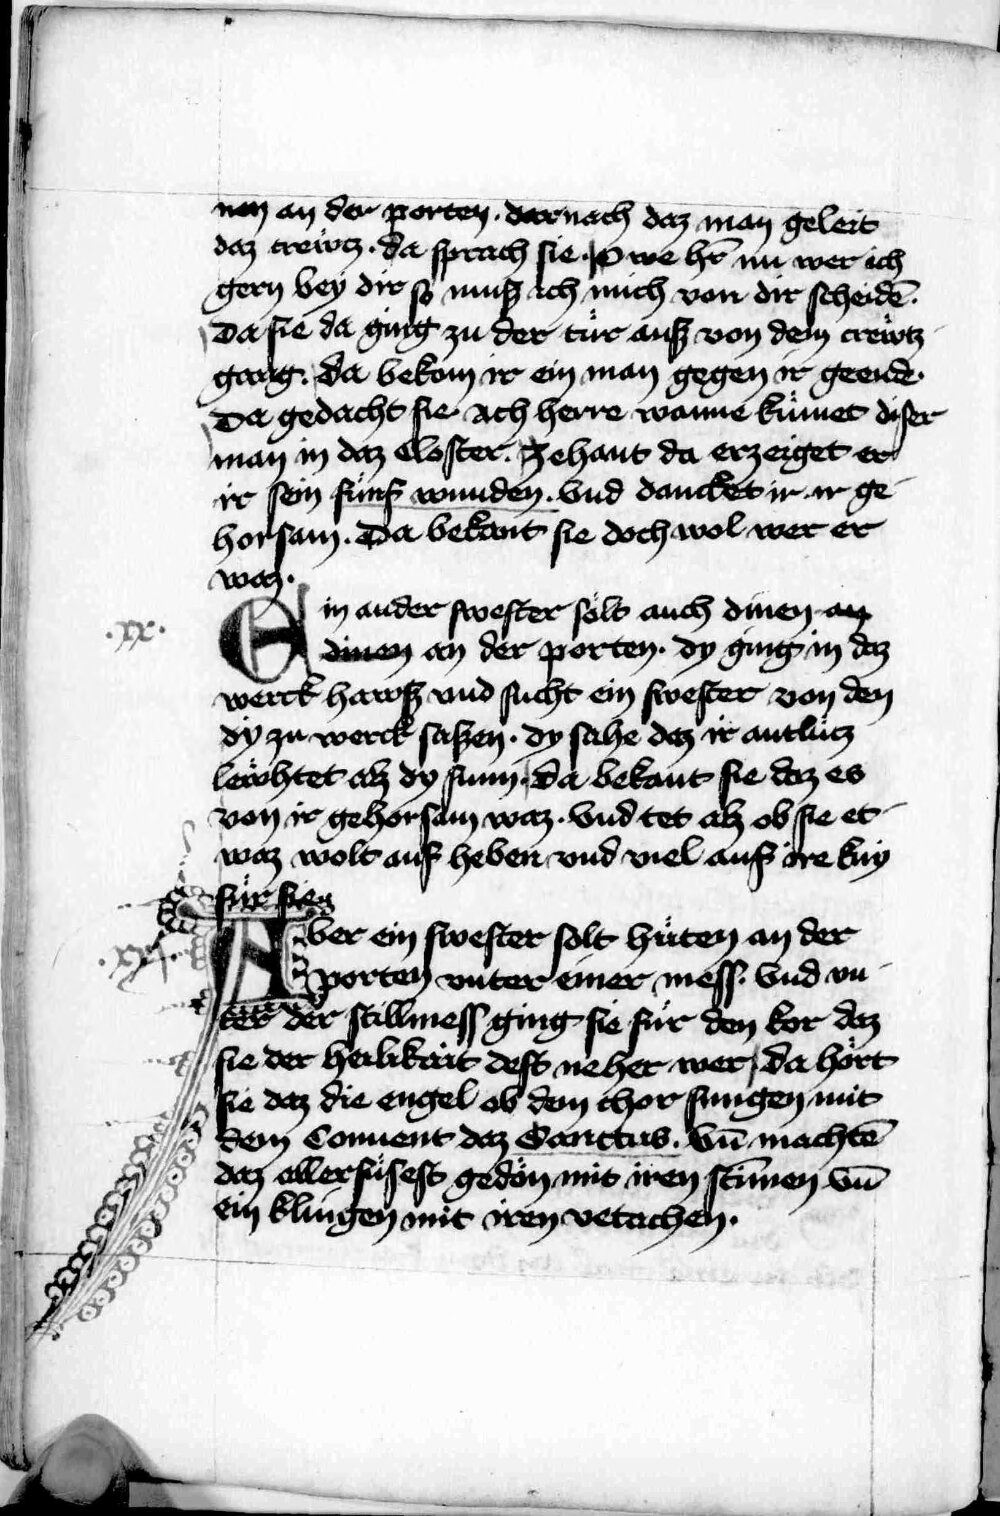 nen an der porten. darnach daz man geleit
daz crewtz. da sprach sie. O we hr̄ nu wer ich
gern bey dir so muß ich mich von dir scheidē.
Da sie da ging zu der tür auß von dem crewtz
gang. Da bekom ir ein man gegen ir geende.
Da gedacht sie ach herre wanne kümet diser
man in daz closter. Zehant da erzeiget er
ir sein fünf wunden. Vnd dancket ir ir ge-
horsam. Da bekant sie doch wol wer er
waz.
.xx.
Ein ander swester solt auch dinen an
dinen an der porten. dy ging in daz
werck hawß vnd sucht ein swester von den
dy zu werck saßen. dy sahe daz ir antlütz
lewhtet alz dy sunn. da bekant sie daz es
von ir gehorsam waz. Vnd tet alz ob sie et-
waz wolt auf heben vnd viel auf ire kny
für sie
Aber ein swester solt hüten an der
porten vnter einer mess. Vnd vn-
ter der stillmess ging sie für den kor daz
sie der heilikait dest neher wer, da hört
sie daz die engel ob dem chor sungen mit
dem Conuent daz Sanctus. Vn̄ machtē
daz aller süsest gedön mit iren stim̄en vn̄
ein klingen mit iren vetachen.